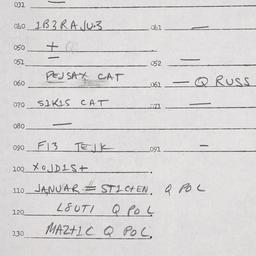 031 —
040 1B3RAJU.3 041 —
050 +
051 — 052 —
PEJSAX CAT
060 061 — Q RUSS
070 S1K1S CAT 071 —
080 —
090 F13 TEJK 091 —
100 XOJD1S+
110 JANUAR = ST1CHEN. Q POL
120 L8UT1 Q POL
130 MAZ+1C Q POL.